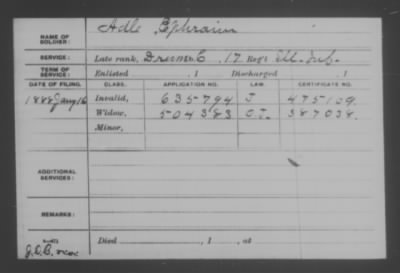 NAME OF SOLDIER: Adle Ephraim
SERVICE: Late rank, Drum Co. C, 17 Reg't Ill. Inf.
TERM OF SERVICE: Enlisted , 1 Discharged , 1
DATE OF FILING. CLASS. APPLICATION NO. LAW. CERTIFICATE NO.
1888 Jany 16 Invalid, 635794 J 475109.
Widow, 504383 O.T. 387038.
Minor,
ADDITIONAL SERVICES:
REMARKS:
Died , 1 , at